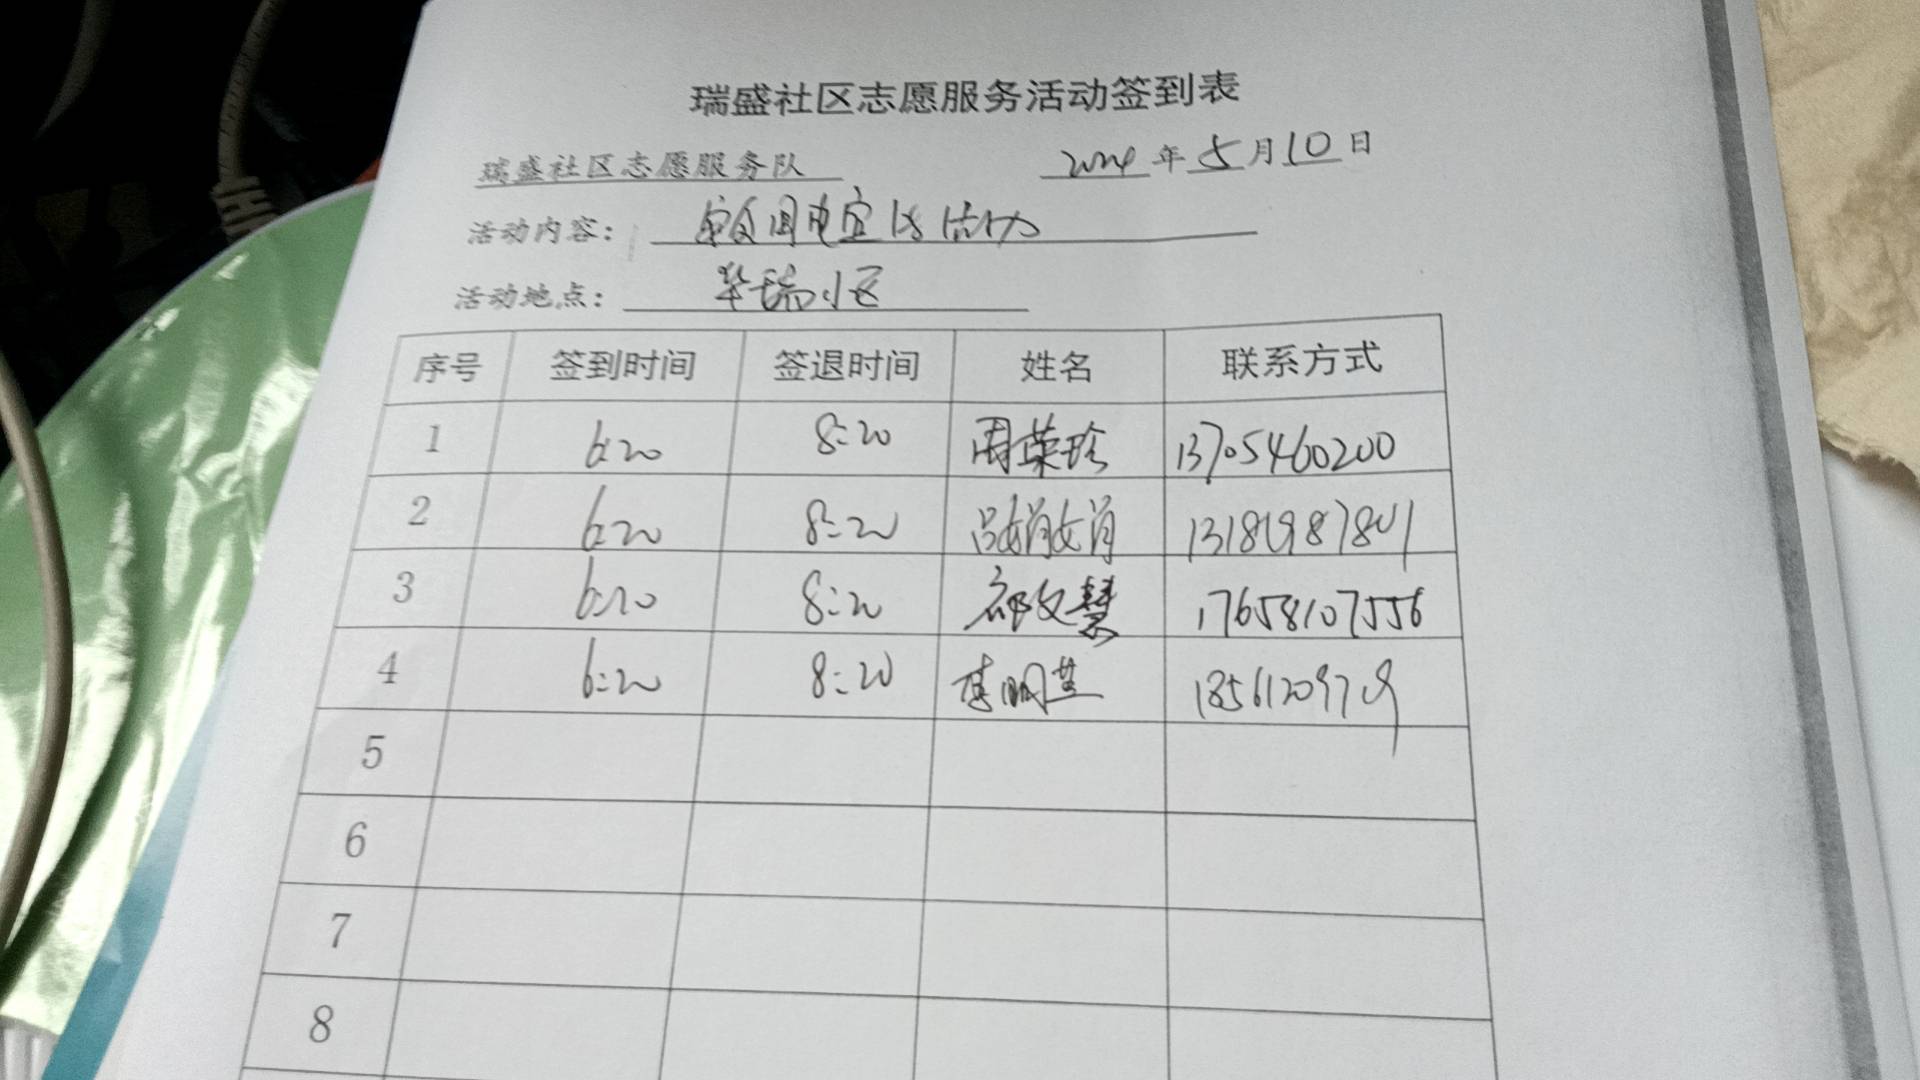 瑞盛社区志愿服务活动签到表
瑞盛社区志愿服务队 2024年5月10日
活动内容：
活动地点：华瑞小区
序号 签到时间 签退时间 姓名 联系方式
1 6:20 8:20 周荣珍 13705460200
2 6:20 8:20 吕娟娟
3 6:20 8:20 17658107556
4 6:20 8:20
5
6
7
8